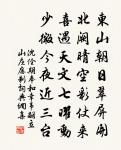 東山朝日翠屏開
北闕晴空彩仗來
喜遇天文七曜動
少微今夜近三台
沈佺期奉和幸韋嗣立
山莊應制詞典網集